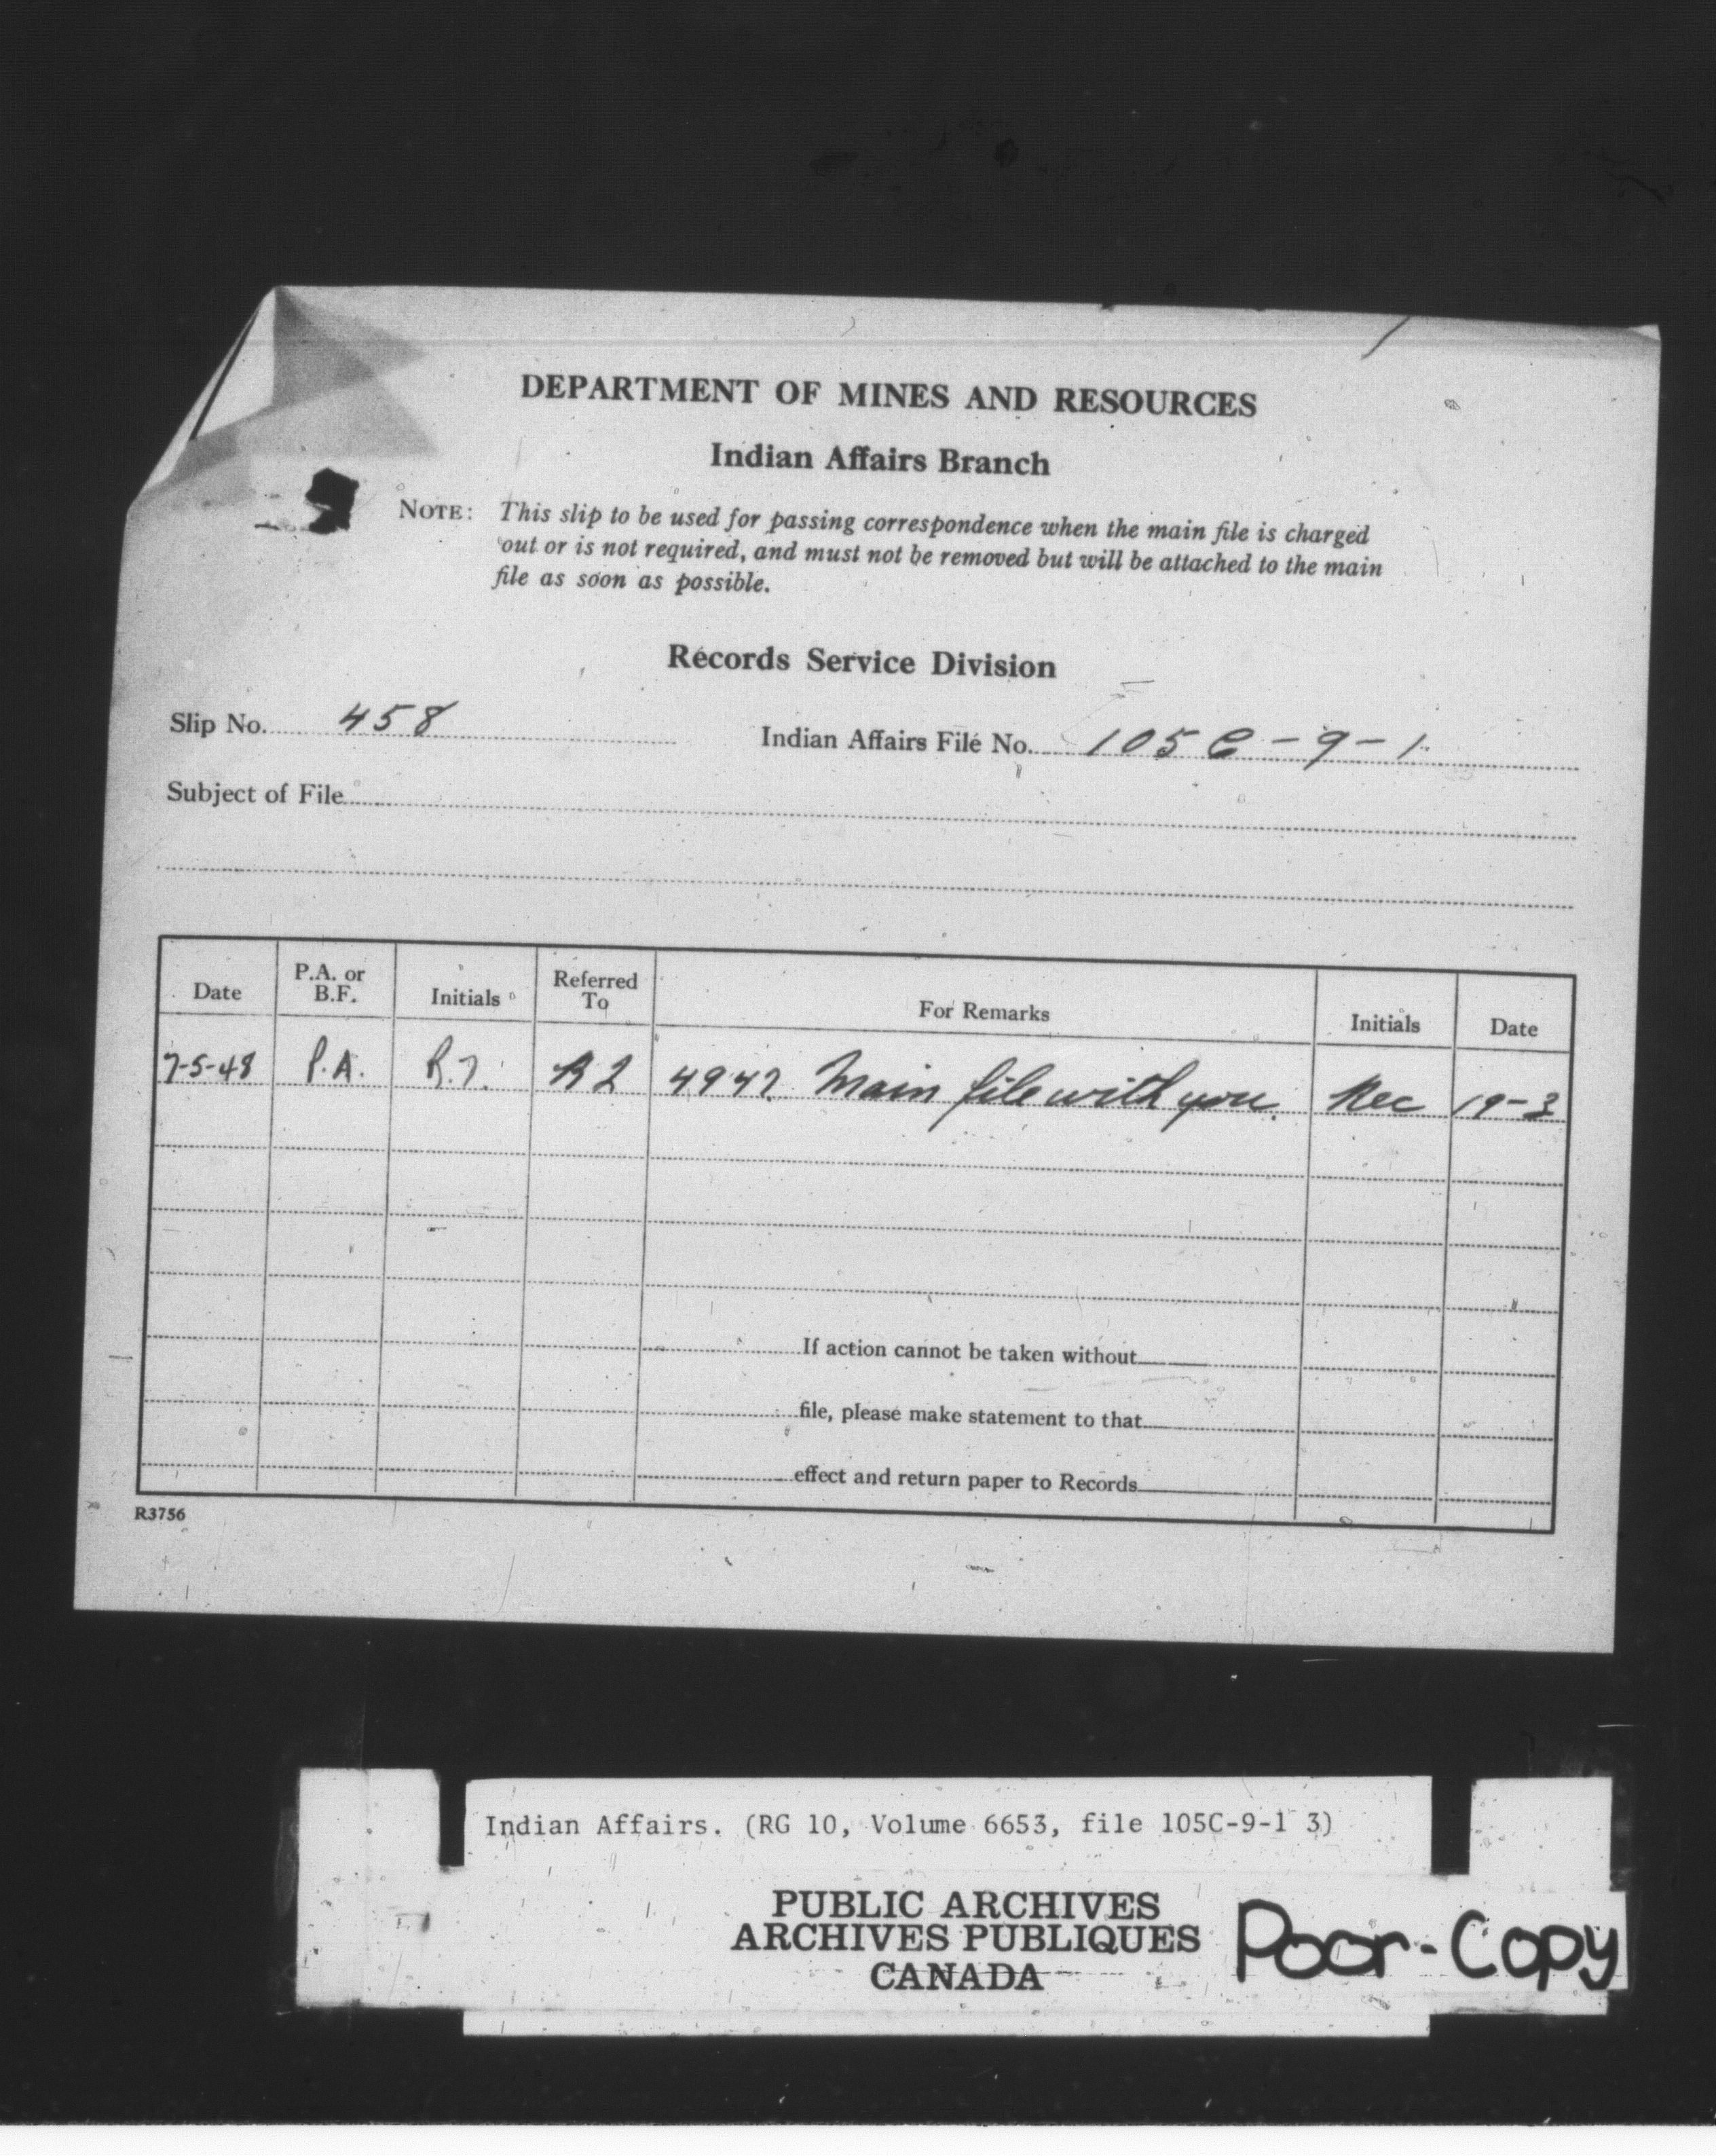 DEPARTMENT OF MINES AND RESOURCES
Indian Affairs Branch
NOTE: This slip to be used for passing correspondence when the main file is charged
out or is not required, and must not be removed but will be attached to the main
file as soon as possible.
Records Service Division
Slip No. 458 Indian Affairs File No. 105 C-9-1
Subject of File
Date P.A. or B.F. Initials Referred To For Remarks Initials Date
7-5-48 P.A. R.7. R2 4947. Main file with you. Rec 19-3
If action cannot be taken without
file, please make statement to that
effect and return paper to Records
R3756
Indian Affairs. (RG 10, Volume 6653, file 105C-9-1 3)
PUBLIC ARCHIVES
ARCHIVES PUBLIQUES
CANADA
Poor-Copy